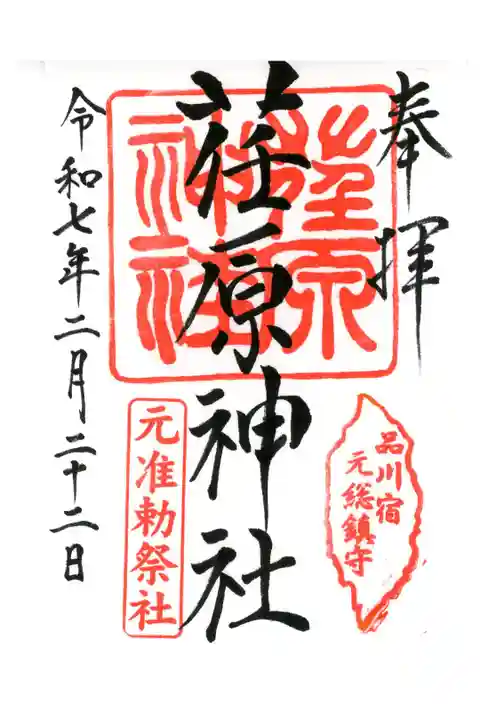 奉拝
荏原神社
令和七年二月二十二日
品川宿
元総鎮守
元准勅祭社